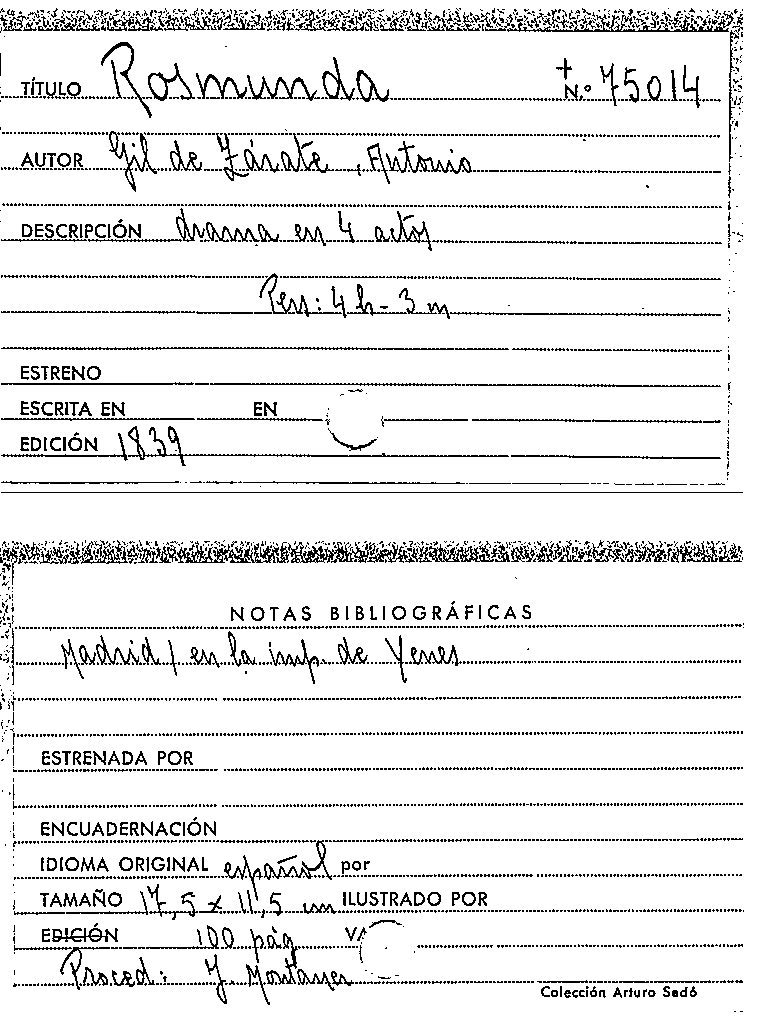 TÍTULO Rosmunda + N.º 75014
AUTOR Gil de Zárate, Antonio
DESCRIPCIÓN drama en 4 actos
Pers: 4 h - 3 m
ESTRENO
ESCRITA EN EN
EDICIÓN 1839
NOTAS BIBLIOGRÁFICAS
Madrid / en la imp. de Yenes
ESTRENADA POR
ENCUADERNACIÓN
IDIOMA ORIGINAL español por
TAMAÑO 17,5 x 11,5 cm ILUSTRADO POR
EDICIÓN 100 pág
Proced: J. Montaner
Colección Arturo Sedó